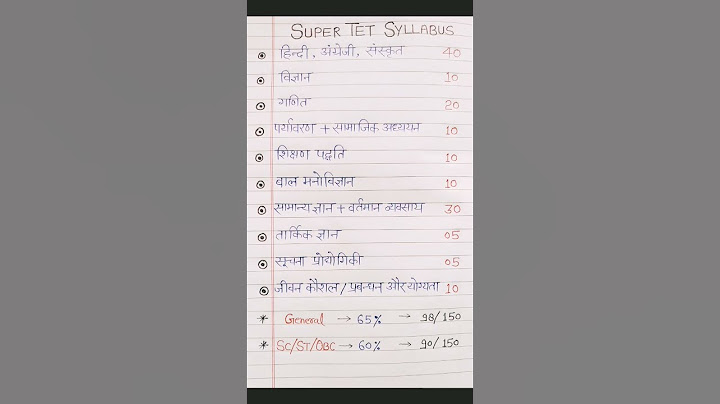 SUPER TET SYLLABUS
हिन्दी, अंग्रेजी, संस्कृत 40
विज्ञान 10
गणित 20
पर्यावरण + सामाजिक अध्ययन 10
शिक्षण पद्धति 10
बाल मनोविज्ञान 10
सामान्य ज्ञान + वर्तमान व्यवसाय 30
तार्किक ज्ञान 05
सूचना प्रोद्योगिकी 05
जीवन कौशल / प्रबन्धन और योग्यता 10
* General → 65% → 98/150
* SC/ST/OBC → 60% → 90/150